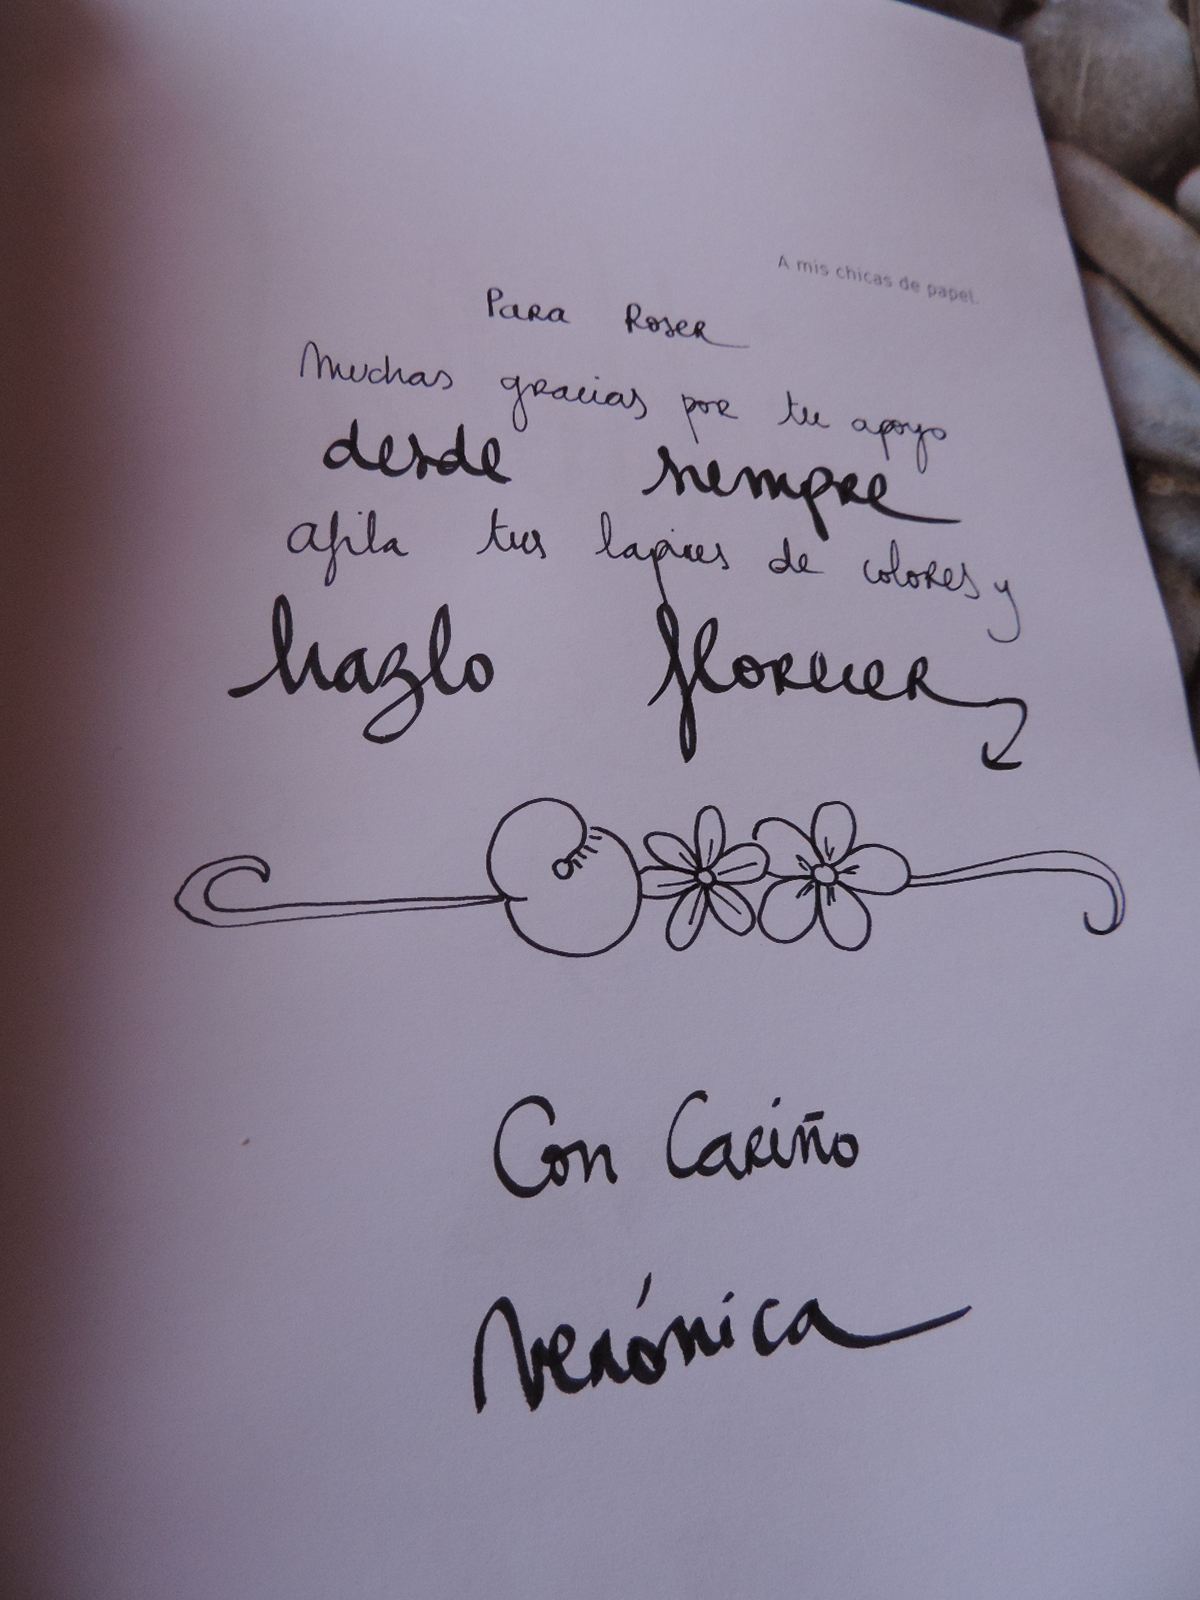 A mis chicas de papel.
Para Roser
Muchas gracias por tu apoyo
desde siempre
afila tus lapices de colores y
hazlo florecer
Con Cariño
Verónica